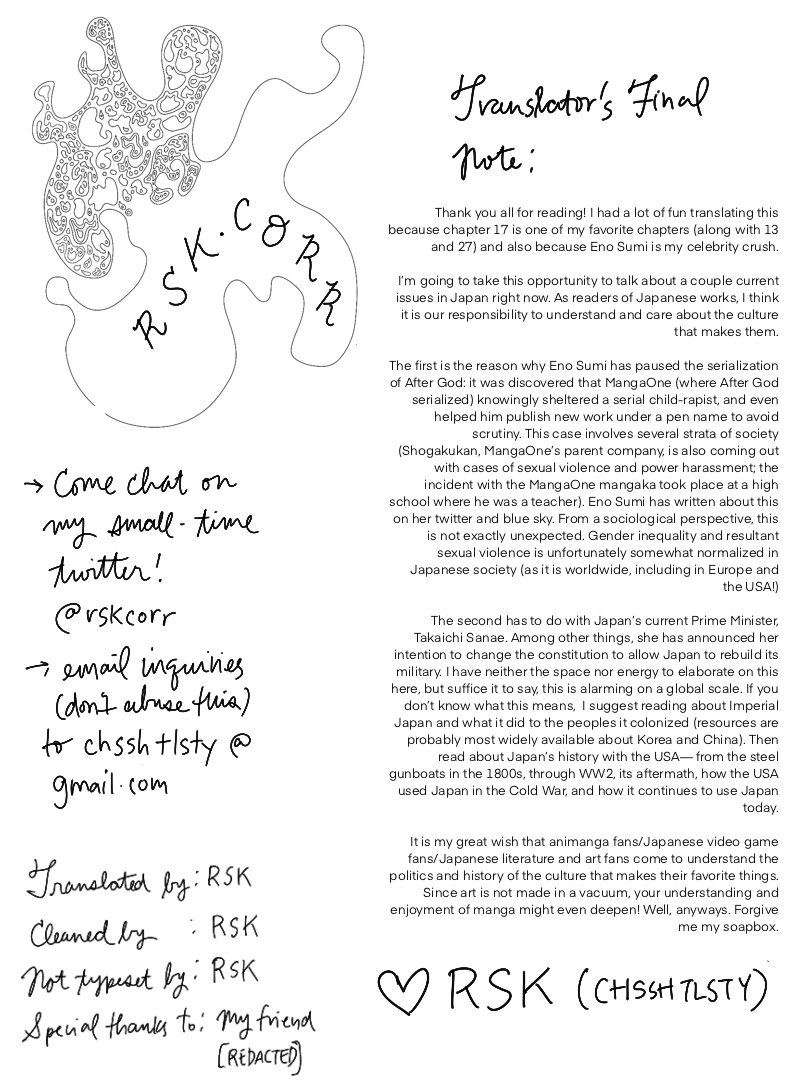 RSK.CORR
→ Come chat on
my small-time
twitter!
@rskcorr
→ email inquiries
(don't abuse this)
to chsshtlsty @
gmail.com
Translated by: RSK
Cleaned by : RSK
Not typeset by: RSK
Special thanks to: my friend
[REDACTED]
Translator's Final
Note:
Thank you all for reading! I had a lot of fun translating this
because chapter 17 is one of my favorite chapters (along with 13
and 27) and also because Eno Sumi is my celebrity crush.
I'm going to take this opportunity to talk about a couple current
issues in Japan right now. As readers of Japanese works, I think
it is our responsibility to understand and care about the culture
that makes them.
The first is the reason why Eno Sumi has paused the serialization
of After God: it was discovered that MangaOne (where After God
serialized) knowingly sheltered a serial child-rapist, and even
helped him publish new work under a pen name to avoid
scrutiny. This case involves several strata of society
(Shogakukan, MangaOne's parent company, is also coming out
with cases of sexual violence and power harassment; the
incident with the MangaOne mangaka took place at a high
school where he was a teacher). Eno Sumi has written about this
on her twitter and blue sky. From a sociological perspective, this
is not exactly unexpected. Gender inequality and resultant
sexual violence is unfortunately somewhat normalized in
Japanese society (as it is worldwide, including in Europe and
the USA!)
The second has to do with Japan's current Prime Minister,
Takaichi Sanae. Among other things, she has announced her
intention to change the constitution to allow Japan to rebuild its
military. I have neither the space nor energy to elaborate on this
here, but suffice it to say, this is alarming on a global scale. If you
don't know what this means, I suggest reading about Imperial
Japan and what it did to the peoples it colonized (resources are
probably most widely available about Korea and China). Then
read about Japan's history with the USA— from the steel
gunboats in the 1800s, through WW2, its aftermath, how the USA
used Japan in the Cold War, and how it continues to use Japan
today.
It is my great wish that animanga fans/Japanese video game
fans/Japanese literature and art fans come to understand the
politics and history of the culture that makes their favorite things.
Since art is not made in a vacuum, your understanding and
enjoyment of manga might even deepen! Well, anyways. Forgive
me my soapbox.
♡ RSK (CHSSHTLSTY)